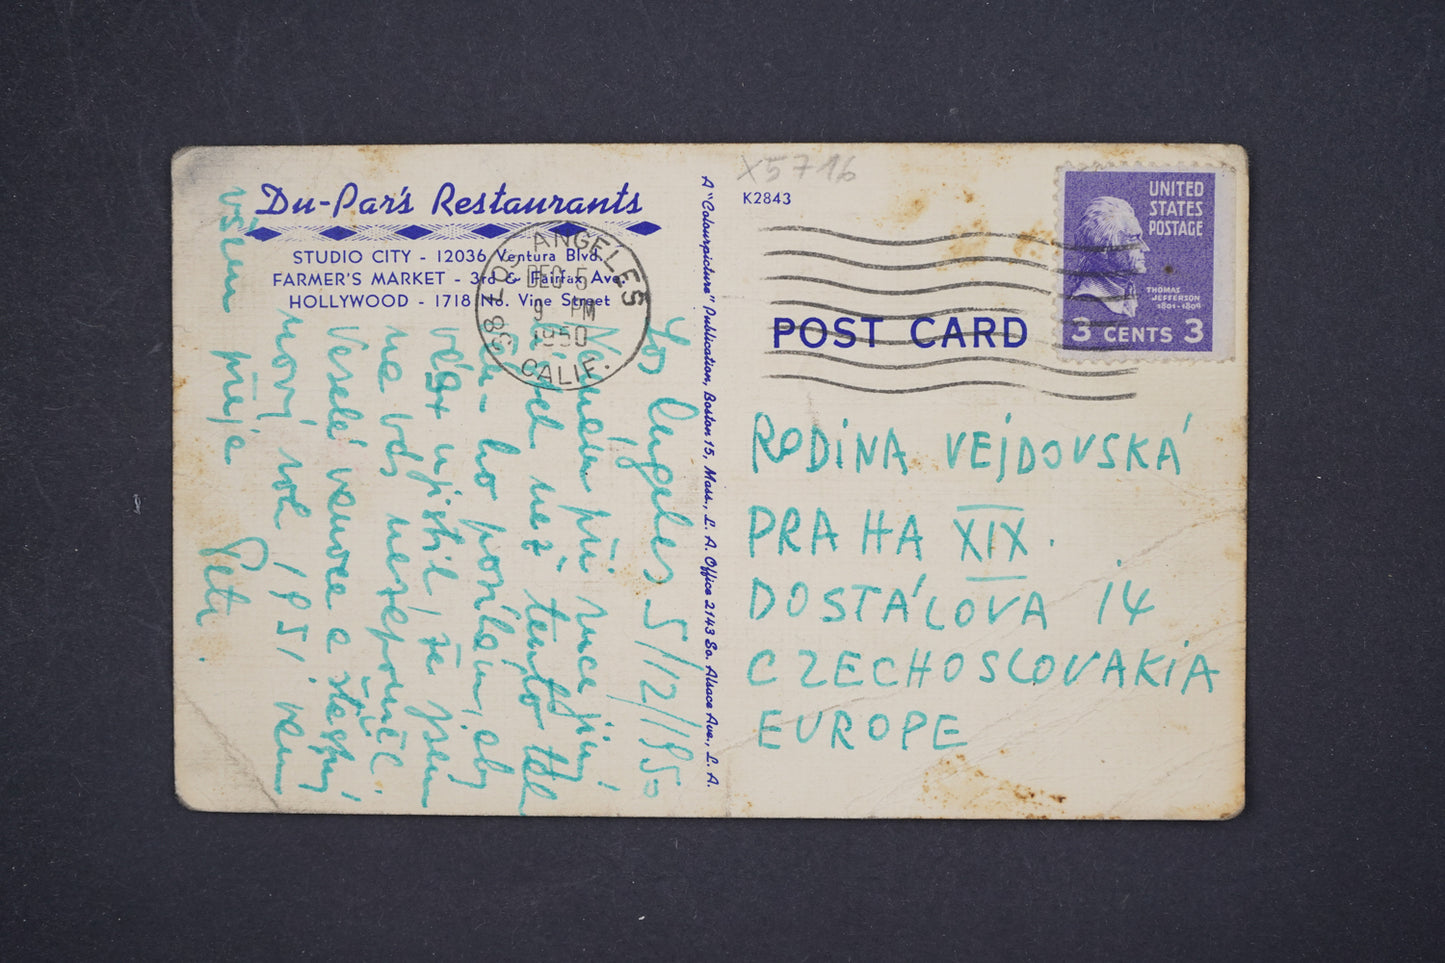 Du-Par's Restaurants
STUDIO CITY - 12036 Ventura Blvd.
FARMER'S MARKET - 3rd & Fairfax Ave.
HOLLYWOOD - 1718 No. Vine Street
LOS ANGELES 38
DEC 5
9 PM
1950
CALIF.
Los Angeles 5/12/1950
Nemám při ruce jiný
než tento tak
ho posílám, aby
vás ujistil, že jsem
na vás nezapomněl.
Veselé vánoce a šťastný
nový rok 1951 vám
všem přeje
Petr.
A "Colourpicture" Publication, Boston 15, Mass., L. A. Office 2143 So. Alsace Ave., L. A.
X5716
K2843
UNITED
STATES
POSTAGE
THOMAS
JEFFERSON
1801-1809
3 CENTS 3
POST CARD
RODINA VEJDOVSKÁ
PRAHA XIX.
DOSTÁLOVA 14
CZECHOSLOVAKIA
EUROPE